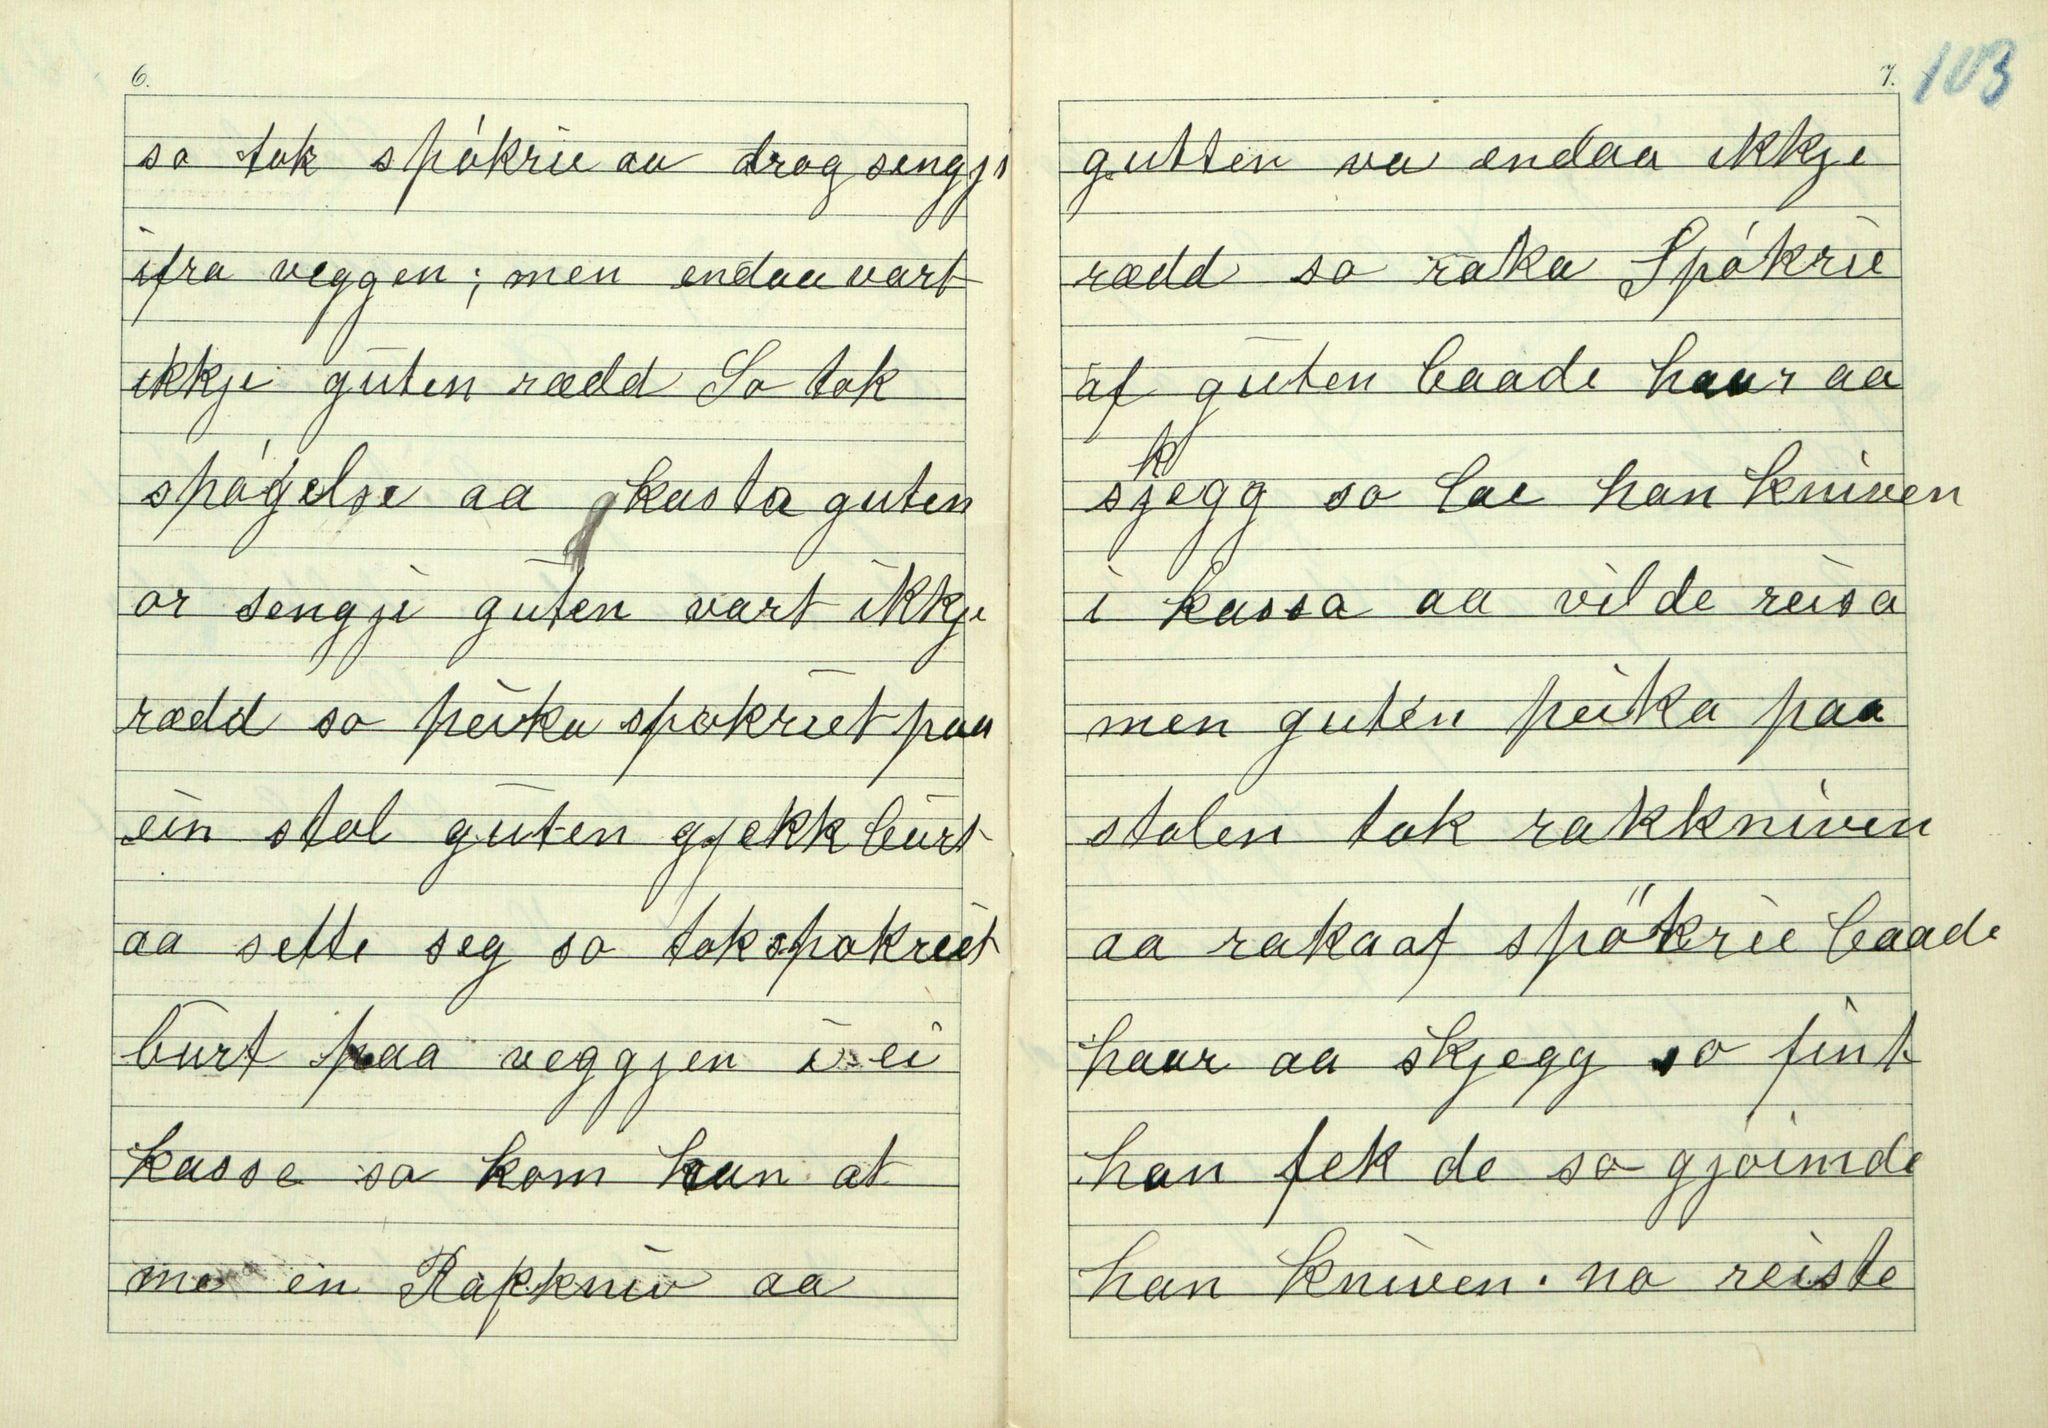 6.
so tok spókrie aa drog sengji
ifra veggen; men endaa vart
ikkje guten rædd So tok
spógelse aa kasta guten
or sengji guten vart ikkje
rædd so peika spokriet paa
ein stol guten gjekk burt
aa sette seg so tok spokriet
burt paa veggjen i ei
kasse so kom han at
me en Rakkniv aa
7. 103
gutten va endaa ikkje
rædd so raka Spókrie
af guten baade haar aa
skjegg so lae han kniven
i kassa aa vilde reisa
men guten peika paa
stolen tok rakkniven
aa raka af spökrie baade
haar aa skjegg so fint
han fek de so gjoimde
han kniven. no reiste